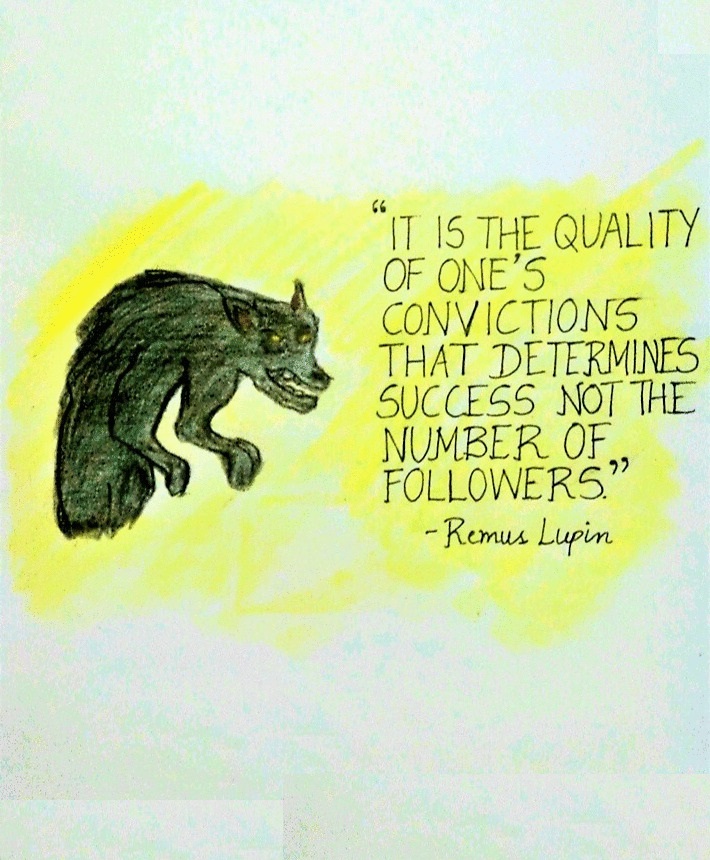 "IT IS THE QUALITY
OF ONE'S
CONVICTIONS
THAT DETERMINES
SUCCESS NOT THE
NUMBER OF
FOLLOWERS."
-Remus Lupin